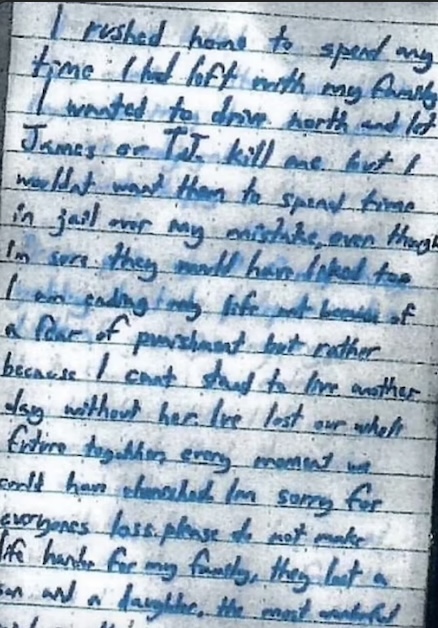 I rushed home to spend any
time I had left with my family
I wanted to drive north and let
James or T.J. kill me but I
wouldnt want them to spend time
in jail over my mistake, even though
Im sure they would have liked too
I am ending my life not because of
a fear of punishment but rather
because I cant stand to live another
day without her. Ive lost our whole
future together, every moment we
could have cherished. Im sorry for
everyones loss. please do not make
life harder for my family, they lost a
son and a daughter, the most wonderful